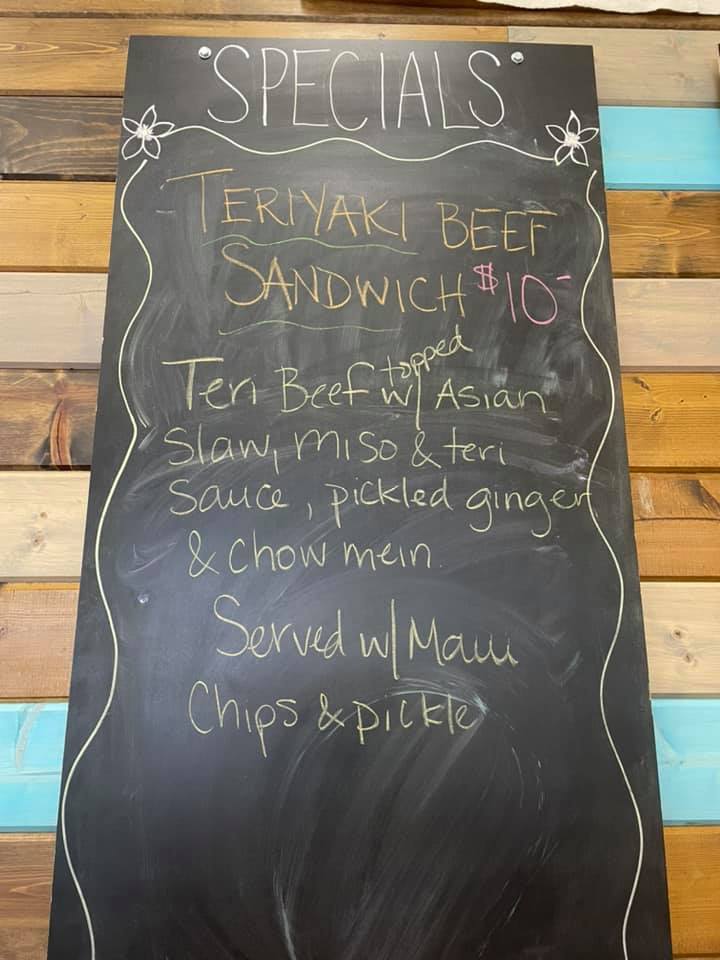 SPECIALS
TERIYAKI BEEF
SANDWICH $10-
Teri Beef topped w/ Asian
Slaw, miso & teri
Sauce, pickled ginger
& Chow mein.
Served w/ Maui
Chips & pickle